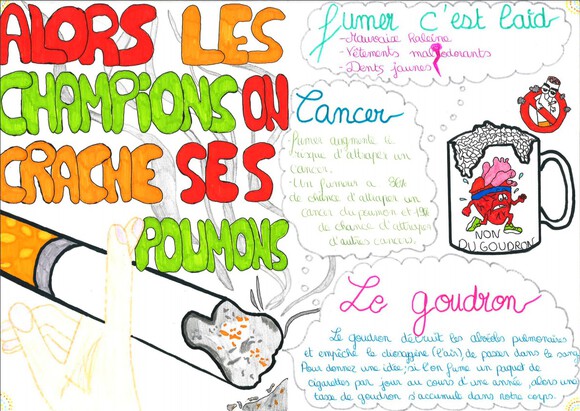 ALORS LES
CHAMPIONS ON
CRACHE SES
POUMONS
fumer c'est laid
-Mauvaise haleine
-Vêtements malodorants
-Dents jaunes
Cancer
Fumer augmente le
risque d'attraper un
cancer.
-Un fumeur a 86%
de chance d'attraper un
cancer du poumon et 19%
de chance d'attraper
d'autres cancers.
NON
DU GOUDRON
Le goudron
Le goudron détruit les alvéoles pulmonaires
et empêche le dioxygène (l'air) de passer dans le sang
Pour donnez une idée, si l'on fume un paquet de
cigarettes par jour au cours d'une année, alors une
tasse de goudron s'accumule dans notre corps.